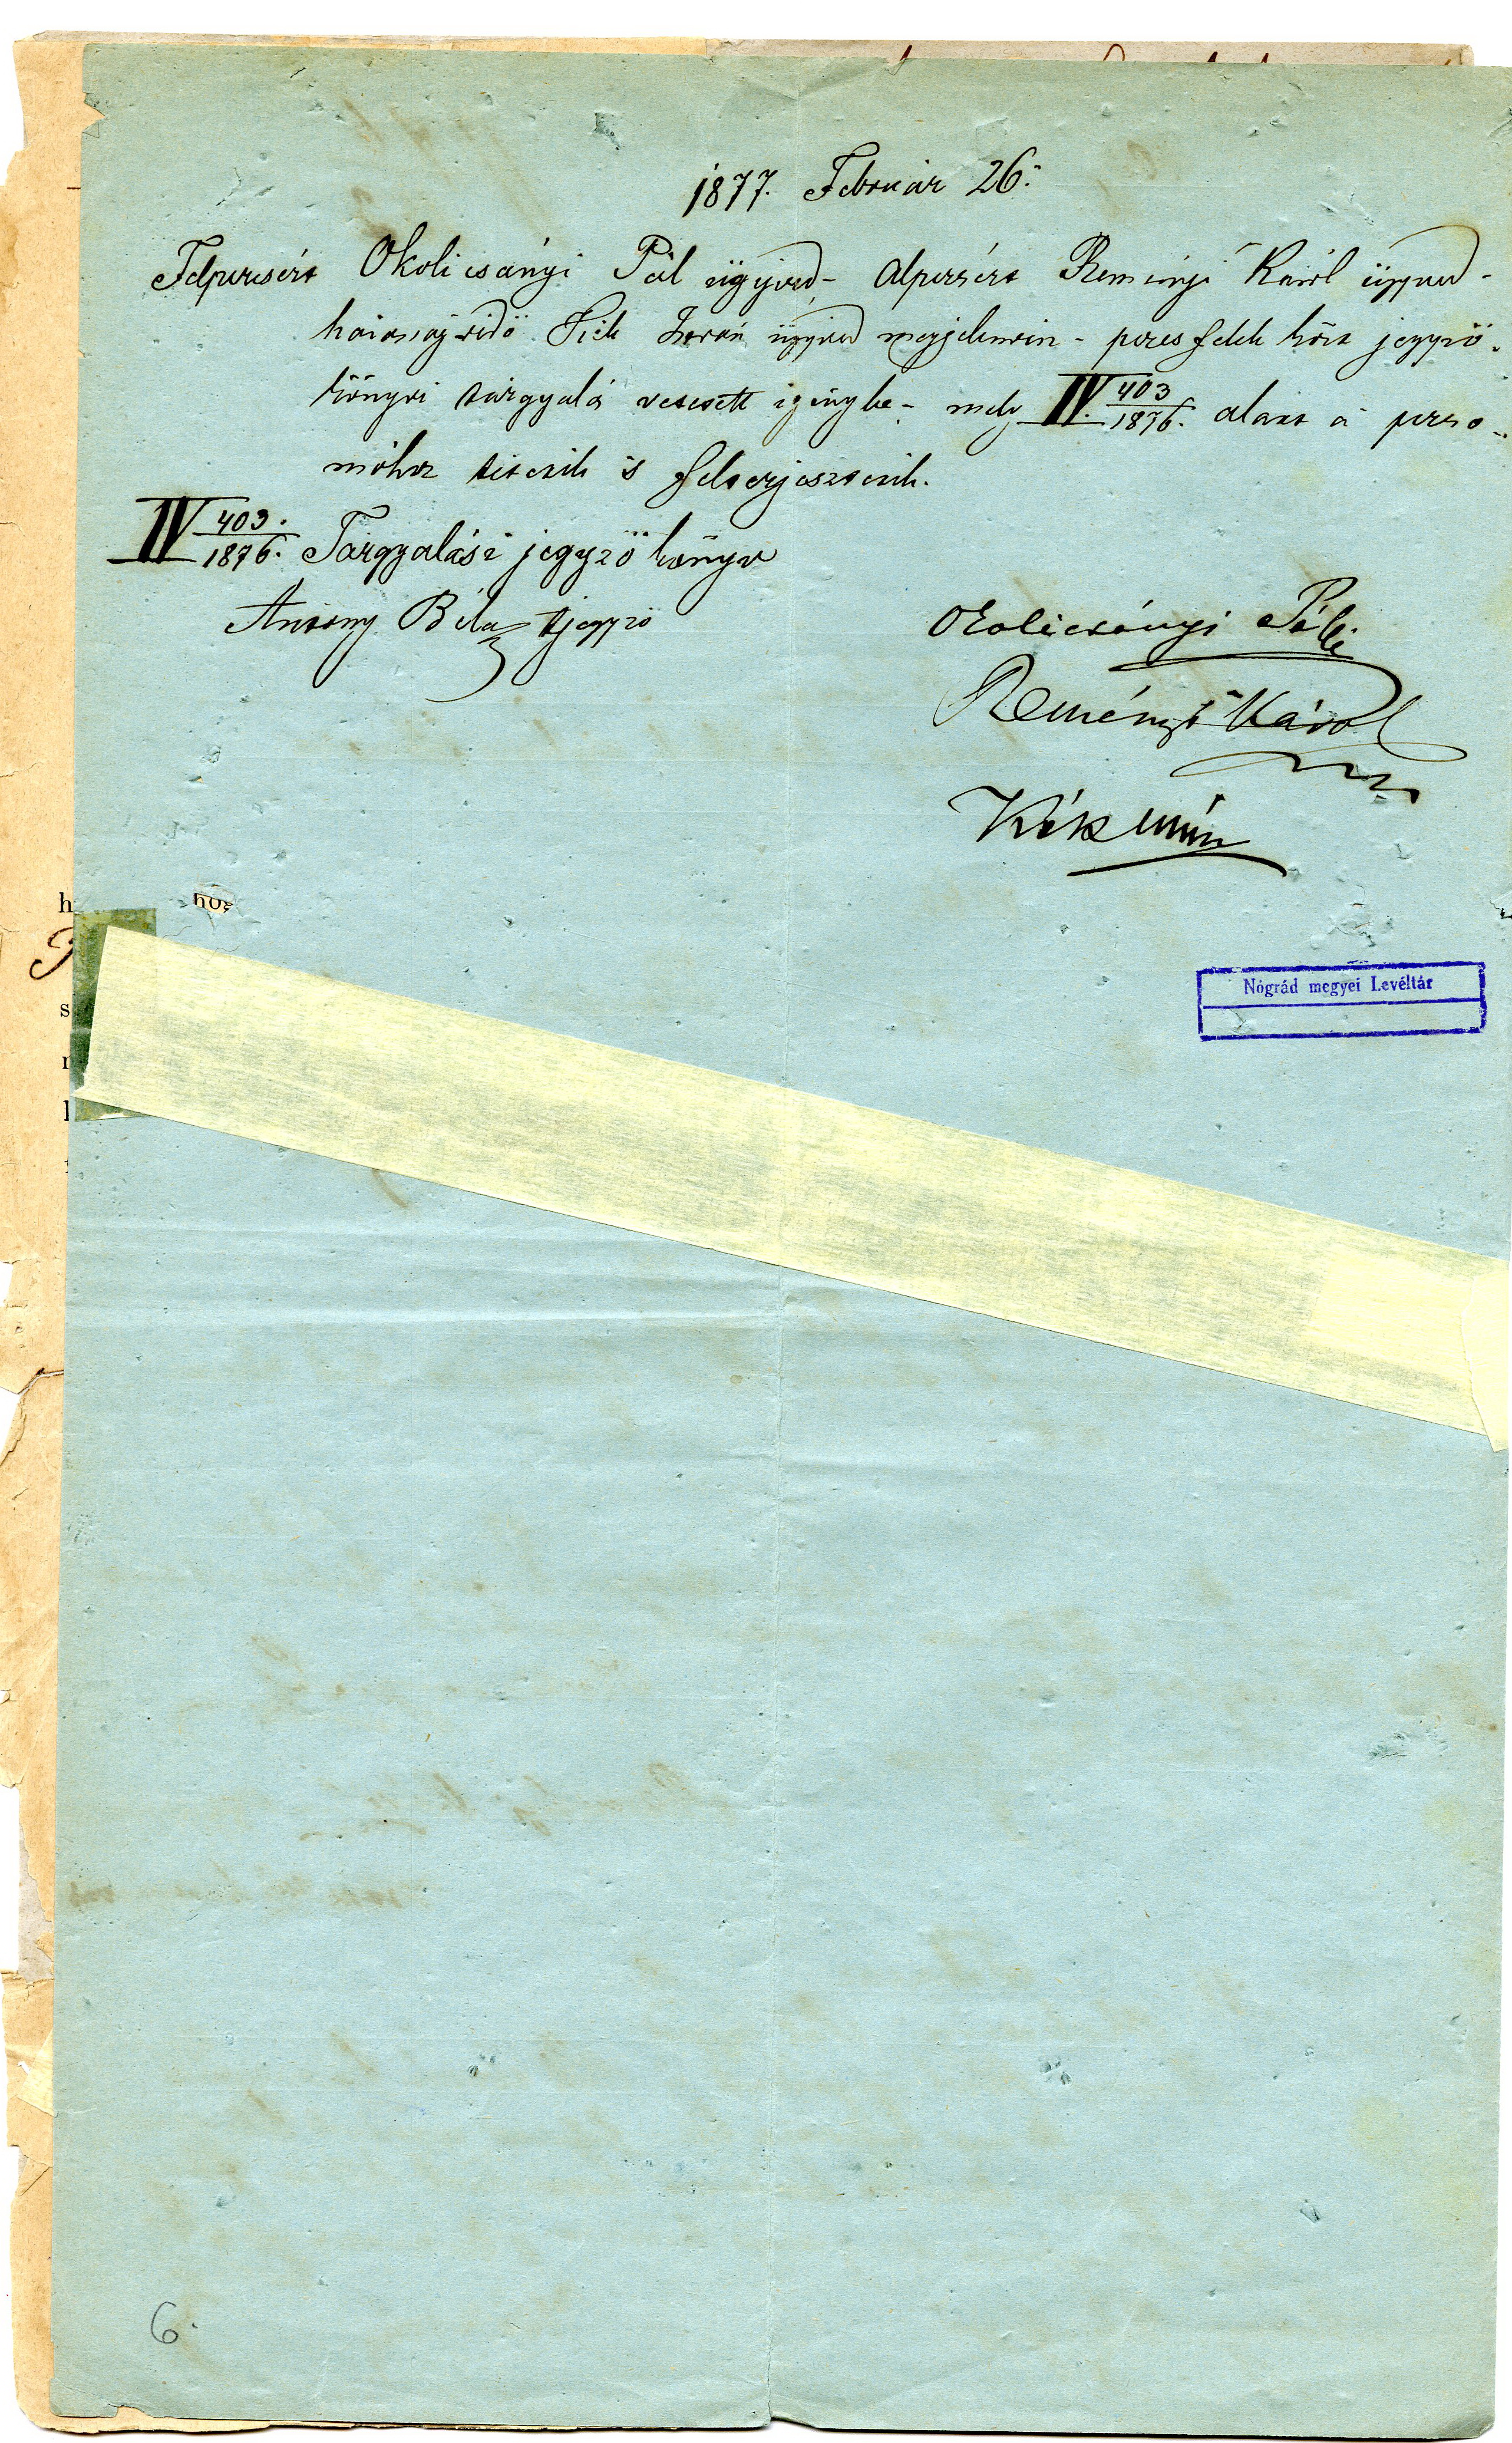 1877. Február 26.
Felperesért Okolicsányi Pál ügyved - Alperesért Reményi Károl ügyved -
István ügyved megjelenvén - peres felek közt jegyző-
könyvi tárgyalás vétetett igénybe - mely IV. 403/1876. alatt a pere-
mőhez tétetik is felterjesztetik.
IV 403./1876. Tárgyalási jegyző könyv
Antony Béla tjegyző
Okolicsányi Pál
Reményi Károl
Kék
Nógrád megyei Levéltár
6.